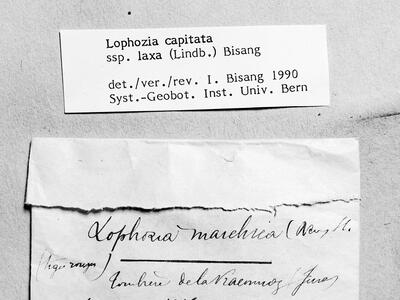 Lophozia capitata
ssp. laxa (Lindb.) Bisang
det./ver./rev. I. Bisang 1990
Syst.-Geobot. Inst. Univ. Bern
Lophozia marchica (Nees)
Tourbière de la